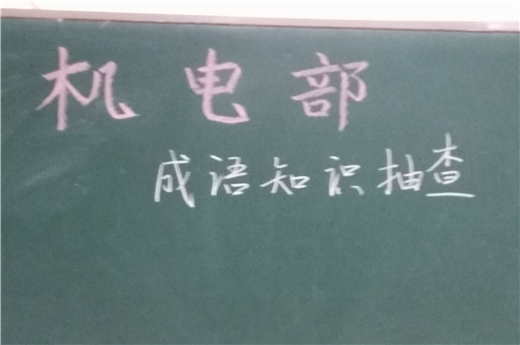 机电部
成语知识抽查